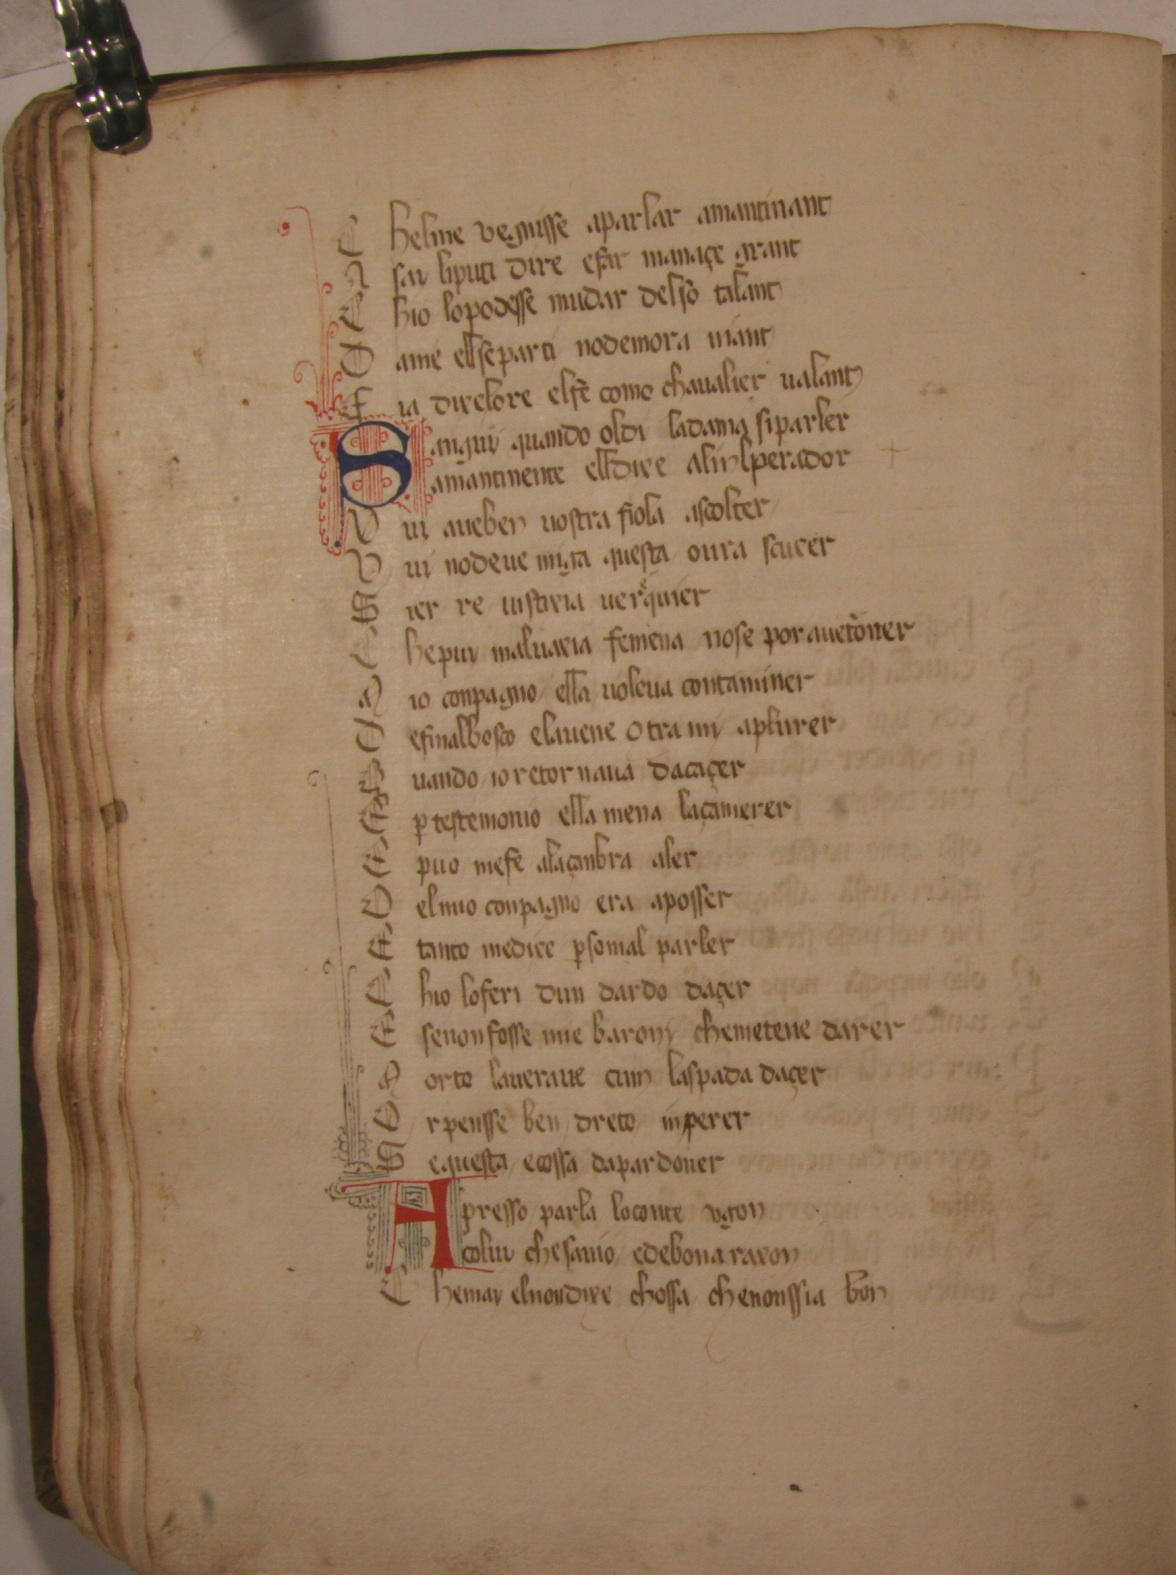 C heline vegnisse aparlar amantinant
A sai liputi dire efar manaçe grant
C hio lopodesse mudar delsõ talant
D ame ellseparti nodemora niant
F ia dirclore elfẽ como chaualier ualant
S anguī quando oldi ladama siparler
amantinente elldixe alinperador
V ui aueben uostra fiola ascolter
V ui nodeue miga questa oura seucer
S ier re iustixia uerq̃uier
C hepui maluaxia femena nose por auet̃oner
M io conpagno ella uoleua contaminer
D efinalbosco elauene otra mi aplurer
Q uando io retornaua dacaçer
E p testemonio ella mena laçamerer
E puo mefe alaçanbra aler
D elmio conpagno era aposser
E tanto medixe psomal parler
C hio loferi dun dardo daçer
E senonfosse mie baroni chemetene darer
M orto laueraue cum laspada daçer
O r pensse ben dreto inperer
S equesta ecossa dapardoner
A presso parla loconte vgon
colui chesauio edebona raxon
C hemay elnondixe chossa chenonssia bon